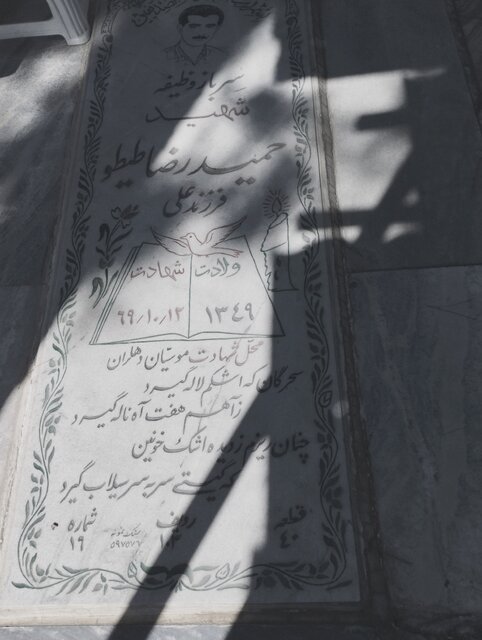 سرباز وظیفه
شهید
حمید رضا طیطو
فرزند علی
ولادت شهادت
۱۳۴۹ ۶۹/۱۰/۱۲
محل شهادت موسیان دهلران
سحرگاهان که اشکم لاله گیرد
ز آهم هفت آه ناله گیرد
چنان ریزم ز دیده اشک خونین
که گیتی سر به سر سیلاب گیرد
قطعه ردیف شماره
۴۰ ۱۲ ۱۹